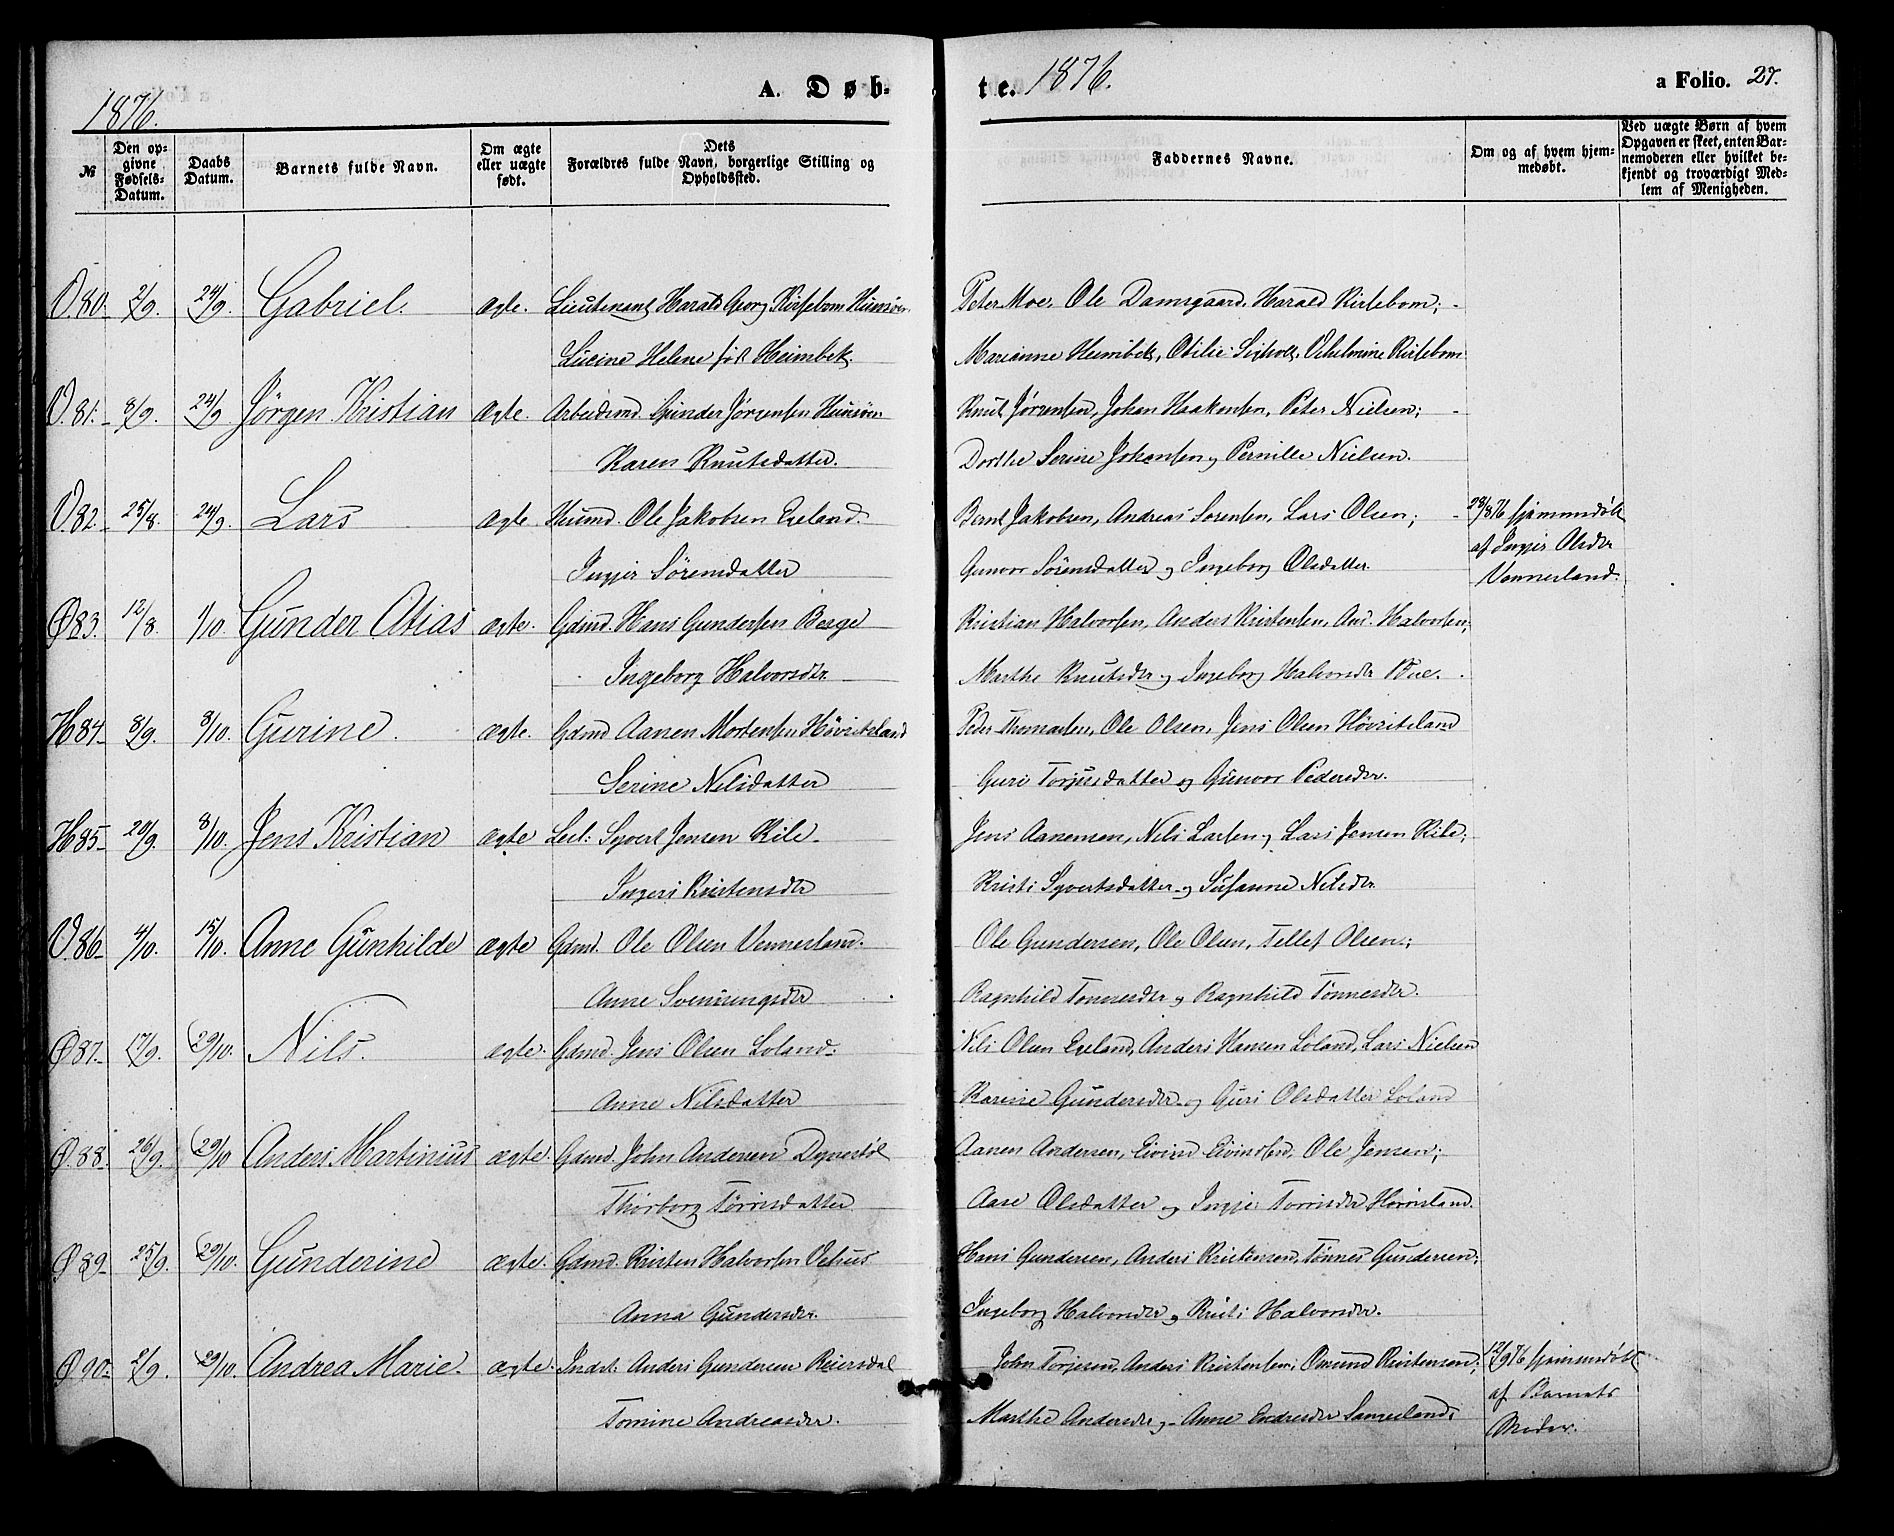 1876.
A. Døb-
№
Den op-
givne
Fødsels-
Datum.
Daabs
Datum.
Barnets fulde Navn.
Om ægte
eller uægte
født.
Dets
Forældres fulde Navn, borgerlige Stilling og
Opholdssted.
V 80. 2/9. 24/9. Gabriel. ægte. Lieutenant Harald Georg Kirsebom
Lucine Helene fød Heimbek
V. 81. 8/9. 24/9 Jørgen Kristian ægte. Arbeidsmd. Gunder Jørgensen Hunsøen
Karen Knutsdatter.
V 82. 25/8. 24/9. Lars ægte Huusmd. Ole Jakobsen Egeland.
Ingjer Sørensdatter
Ø 83. 12/8. 1/10. Gunder Atias ægte. Gdmd. Hans Gundersen Berge
Ingeborg Halvorsdtr.
H 84. 8/9. 8/10. Gurine. ægte. Gdmd Aanen Mortensen Høvritsland
Serine Nilsdatter
H 85. 20/9. 8/10. Jens Kristian ægte Leil: Syvert Jensen Kile.
Ingeri Kristensdtr
V. 86. 4/10. 15/10. Anne Gunhilde ægte Gdmd. Ole Olsen Vennesland.
Anne Svenningsdtr
Ø 87. 17/9. 29/10. Nils. ægte. Gdmd. Jens Olsen Loland.
Anne Nilsdatter
Ø. 88. 26/9. 29/10 Anders Martinius ægte. Gdmd. John Andersen Dynestøl
Thorborg Torrisdatter
Ø 89. 25/9. 29/10. Gunderine ægte. Gdmd. Kristen Halvorsen Vehus
Anna Gundersdtr.
Ø 90. 2/9. 29/10. Andrea Marie. ægte. Indst. Anders Gundersen Reiersdal
Tomine Andreasdtr.
te. 1876.
a Folio. 27.
Faddernes Navne.
Om og af hvem hjem-
medøbt.
Ved uægte Børn af hvem
Opgaven er skeet, enten Bar-
nemoderen eller hvilket be-
kjendt og troværdigt Med-
lem af Menigheden.
Peter Moe, Ole Damsgaard, Harald Kirsebom;
Marianne Heimbek, Otilie Vilhelmine Kirsebom
Knut Jørgensen, Johan Haakensen, Peter Nielsen;
Dorthe Serine Johansen og Pernille Nielsen.
Bernt Jakobsen, Andreas Sorensen, Lars Olsen; 28/8 76 hjemmedøbt
Gunvor Sörensdatter og Ingeborg Olsdatter. af Ingjer Olsdtr
Vennesland.
Kristian Halvorsen, Anders Kristensen, Halvorsen;
Marthe Knutsdtr og Ingeborg Halvorsdtr
Peder Thomassen, Ole Olsen, Jens Olsen Høvritsland
Guri Torjusdatter og Gunvor Pedersdtr.
Jens Aanensen, Nils Larsen og Lars Jensen Kile;
Kristi Syvertsdatter og Susanne Nilsdtr
Ole Gundersen, Ole Olsen, Tellef Olsen;
Ragnhild Tonnesdtr og Ragnhild Tönnesdtr.
Nils Olsen Egeland, Anders Hansen Loland, Lars Nielsen
Karine Gundersdtr og Guri Olsdatter Loland
Aanen Andersen, Eivind Eivindsen, Ole Jensen;
Aase Olsdatter og Ingje Torrisdtr
Hans Gundersen, Anders Kristensen, Tönnes Gundersen;
Ingeborg Halvorsdtr og Kristi Halvorsdtr.
John Torjesen, Anders Kristensen, Omund Kristensen; 12/9 76 hjemmedøbt
Marthe Andersdtr og Anne Endresdtr af Barnets
Moder.